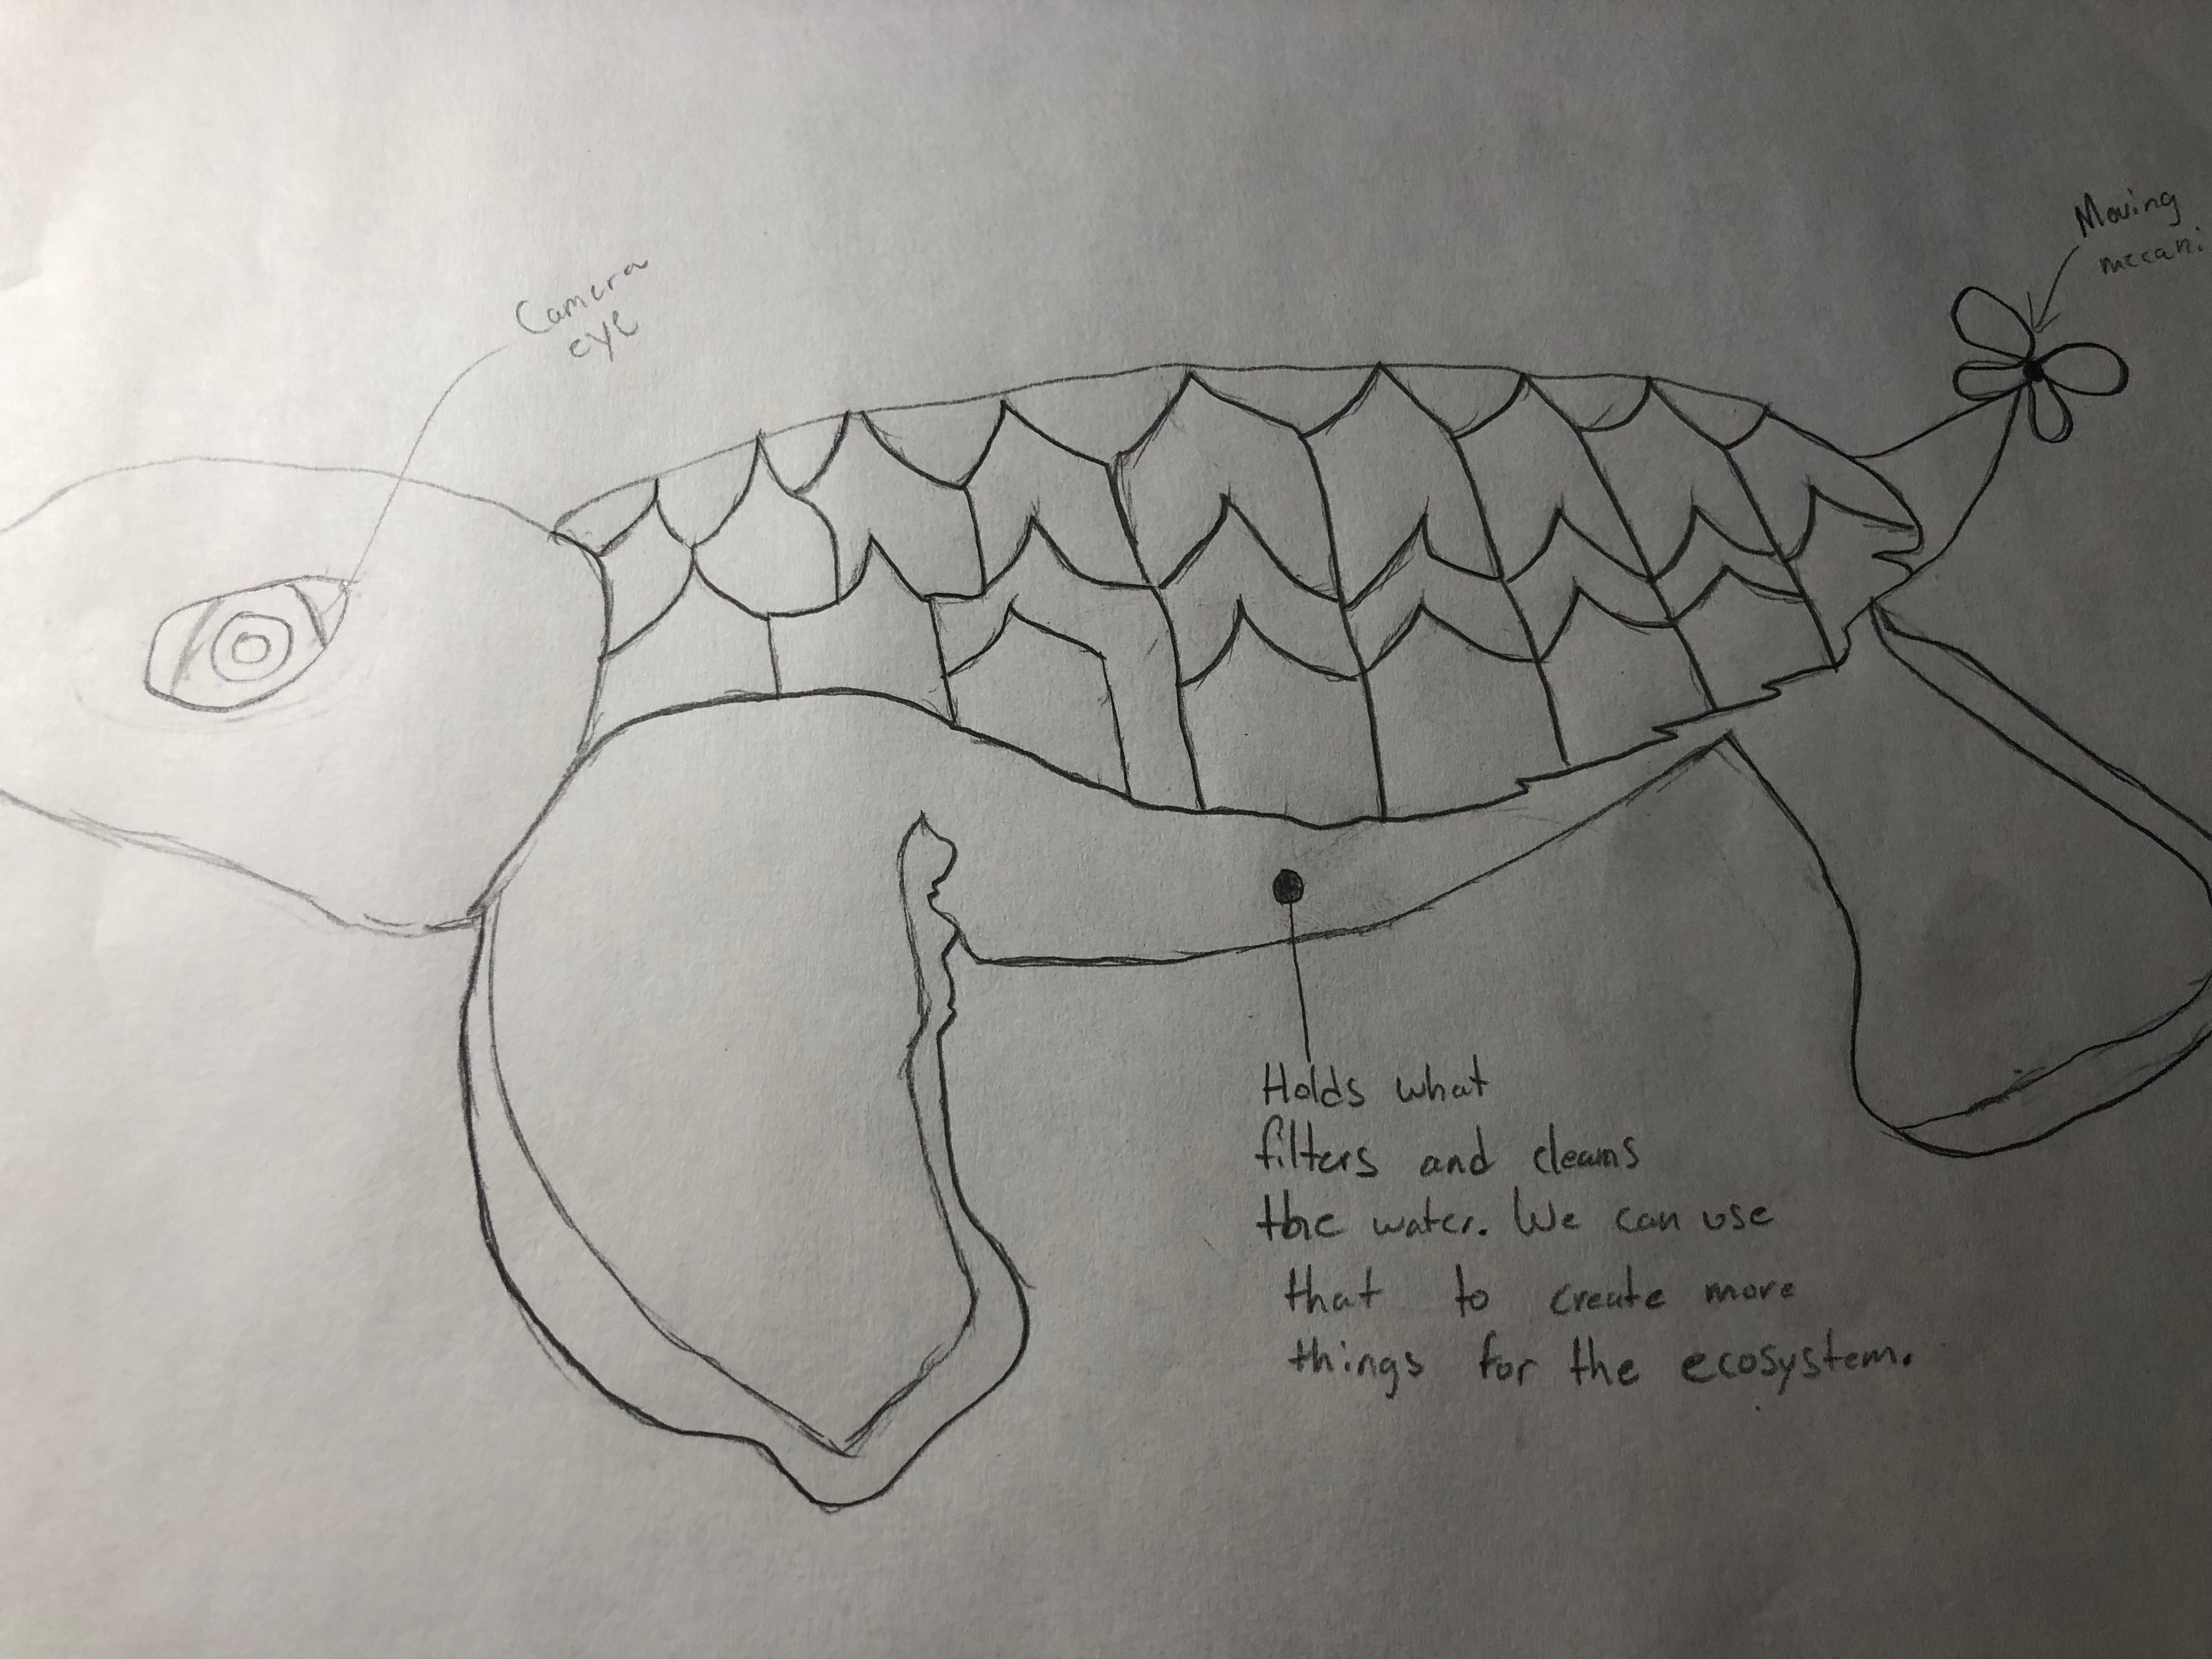 Camera
eye
Moving
mccani
Holds what
filters and cleans
the water. We can use
that to create more
things for the ecosystem.